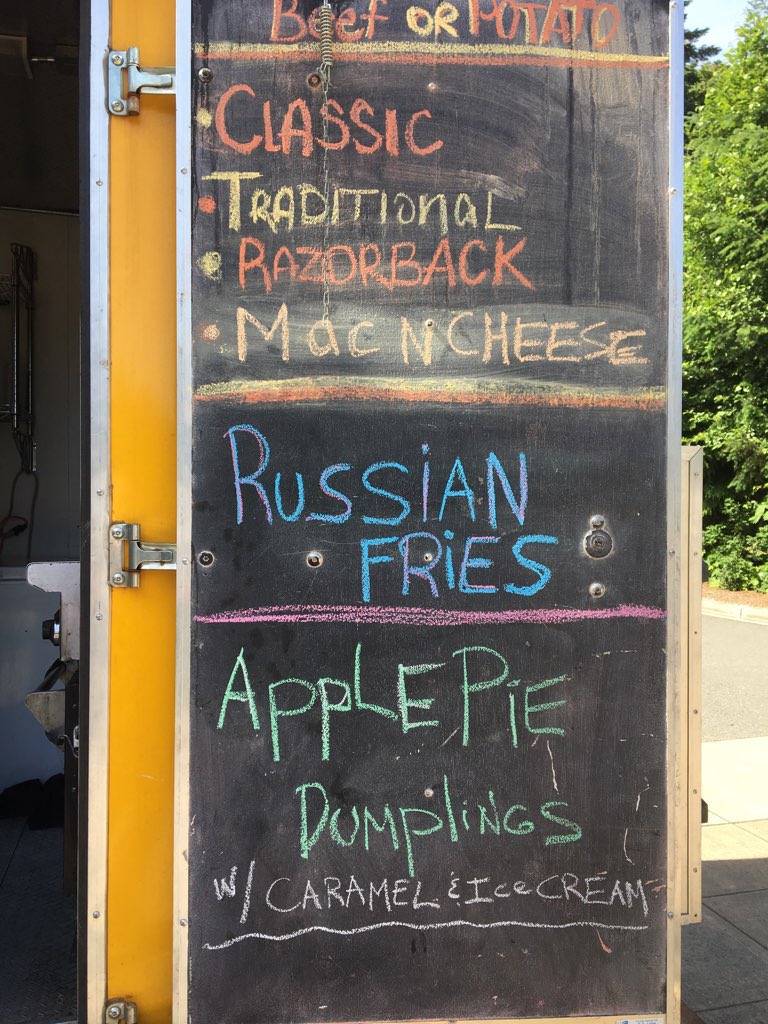 Beef OR POTATO
• CLASSIC
• TRADITIONAL
• RAZORBACK
• Mac N CHEESE
RUSSIAN
FRIES
APPLE PiE
DUMPLINGS
w/ CARAMEL & Ice CREAM